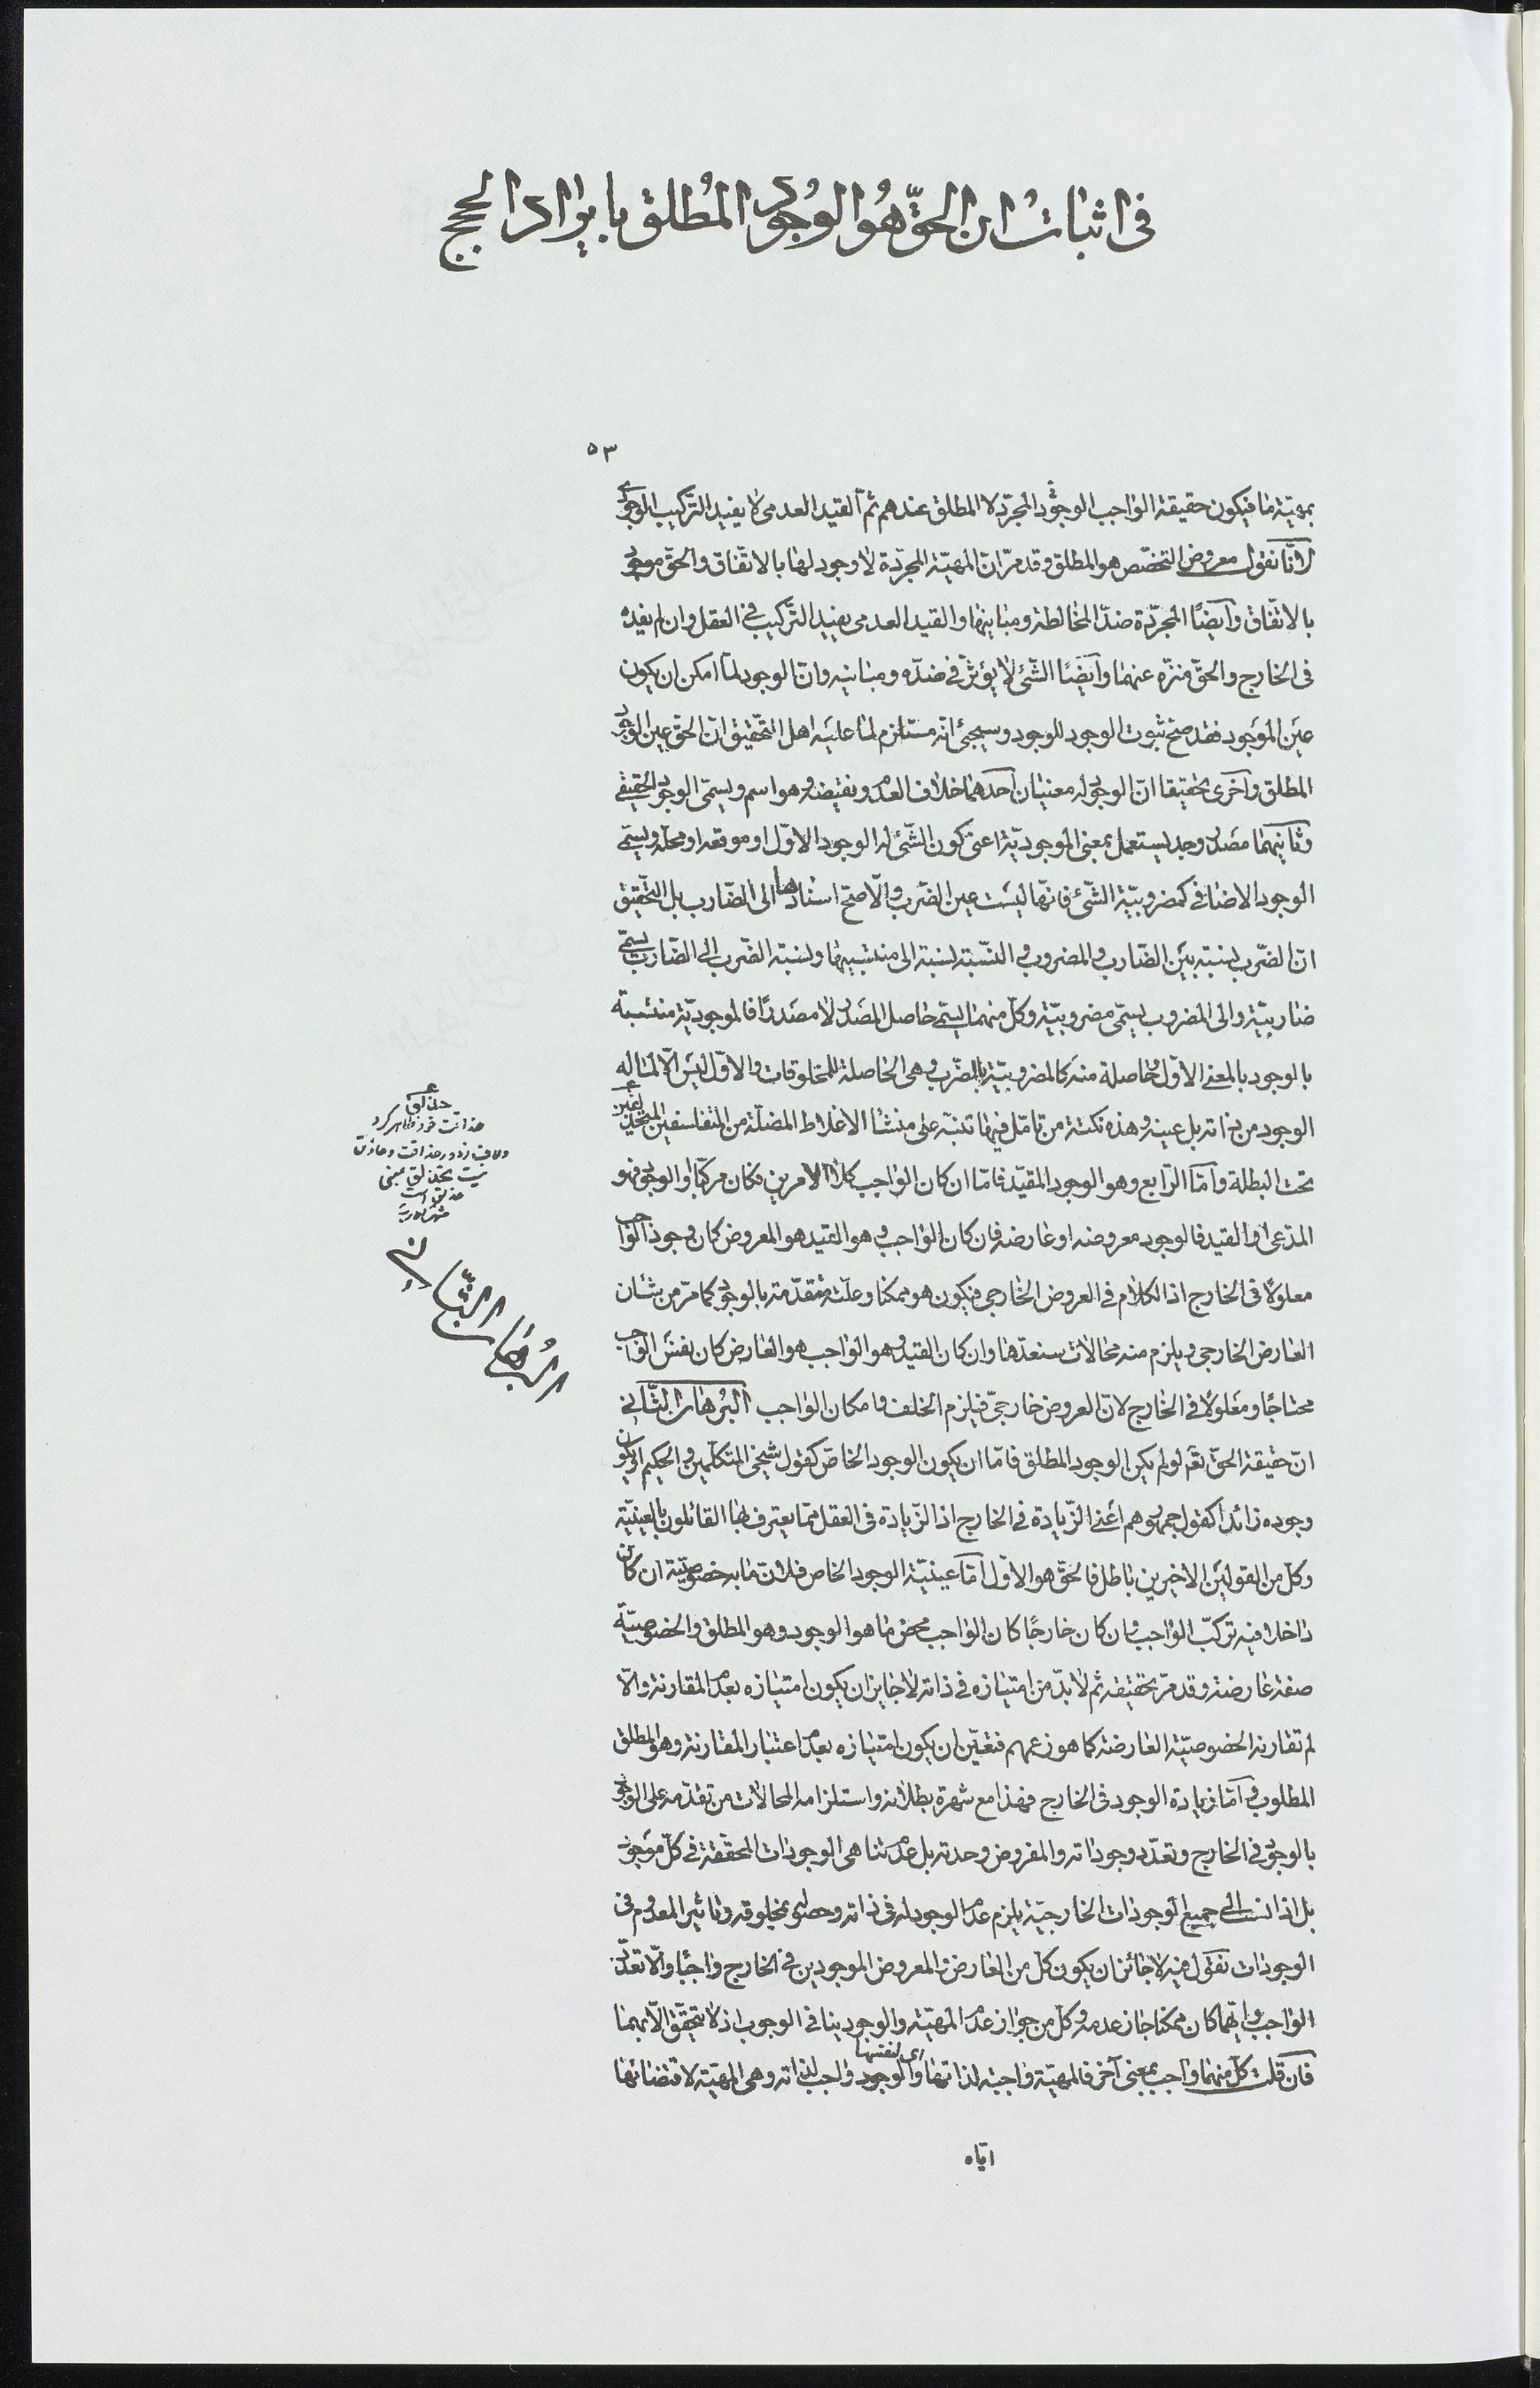 فى اثبات ان الحقّ هو الوجود المطلق بايراد الحجج
٥٣
بمهيّة ما فيكون حقيقة الواجب الوجود المجرّد لا المطلق عندهم ثمّ القيد العدمى لا يفيد التركيب الوجودى
لانّا نقول معروض التخصّص هو المطلق وقد مرّ انّ المهيّة المجرّدة لا وجود لها بالاتّفاق والحقّ موجود
بالاتّفاق وايضًا المجرّدة ضدّ المخالطة ومباينها والقيد العدمى يفيد التركيب فى العقل وان لم يفده
فى الخارج والحقّ منزّه عنهما وايضًا الشّئ لا يؤثّر فى ضدّه ومباينه وانّ الوجود لمّا امكن ان يكون
عين الموجود فقد صحّ ثبوت الوجود للوجود وسيجئ انّه مستلزم لما عليه اهل التحقيق انّ الحقّ عين الوجود
المطلق واخرى تحقيقا انّ الوجود له معنيان احدهما خلاف العدم ونقيضه وهو اسم ويسمّى الوجود الحقيقى
وثانيهما مصدر وجد يستعمل بمعنى الموجوديّة اعنى كون الشّئ له الوجود الاوّل او موقعه او محلّه ويسمّى
الوجود الاضافى كمضروبيّة الشّئ فانّها ليست عين الضّرب والّا صحّ اسنادها الى الضّارب بل التّحقيق
انّ الضّرب نسبة بين الضّارب والمضروب والنّسبة نسبة الى منتسبيها ونسبة الضّرب الى الضّارب يسمّى
ضاربيّة والى المضروب يسمّى مضروبيّة وكلّ منهما يسمّى حاصل المصدر لا مصدرًا فالموجوديّة منتسبة
بالوجود بالمعنى الاوّل وحاصلة منه كالمضروبيّة بالضّرب وهى الحاصلة للمخلوقات والاوّل ليس الّا لما له
الوجود من ذاته بل عينه وهذه نكتة من تامّل فيها تنبّه على منشأ الاغلاط المضلّة من المتفلسفين المتحذلقين
تحت البطلة وامّا الرّابع وهو الوجود المقيّد فامّا ان كان الواجب كلا الامرين فكان مركّبا او الوجود فهو
المدّعى او القيد فالوجود معروضه او عارضه فان كان الواجب وهو القيد هو المعروض كان وجود الواجب
معلولًا فى الخارج اذ الكلام فى العروض الخارجى فيكون هو ممكنا وعلّته متقدّمة بالوجود كما مرّ من شان
العارض الخارجى ويلزم منه محالات سنعدّها وان كان القيد وهو الواجب هو العارض كان نفس الواجب
محتاجًا ومعلولًا فى الخارج لانّ العروض خارجىّ فيلزم الخلف وامكان الواجب البرهان الثّانى
انّ حقيقة الحقّ تعۤ لو لم يكن الوجود المطلق فامّا ان يكون الوجود الخاصّ كقول شيخى المتكلّمين والحكيم او يكون
وجوده زائدا كقول جمهورهم اعنى الزّيادة فى الخارج اذ الزّيادة فى العقل ممّا يعترف بها القائلون بالعينيّة
وكلّ من القولين الاخيرين باطل فالحقّ هو الاوّل امّا عينيّة الوجود الخاص فلانّ ما به خصوصيّته ان كان
داخلا فيه تركّب الواجب وان كان خارجًا كان الواجب محض ما هو الوجود وهو المطلق والخصوصيّة
صفة عارضة وقد مرّ تحقيقه ثم لا بدّ من امتيازه فى ذاته لا جايز ان يكون امتيازه بعدم المقارنة والّا
لم تقارنه الخصوصيّة العارضة كما هو زعمهم فتعيّن ان يكون امتيازه بعدم اعتبار المقارنة وهو المطلق
المطلوب وامّا زيادة الوجود فى الخارج فهذا مع شهرة بطلانه واستلزامه المحالات من تقدّمه على الوجود
بالوجود فى الخارج وتعدّد وجوداته والمفروض وحدته بل عدم تناهى الوجودات المحقّقة فى كلّ موجود
بل اذا نسب الى جميع الوجودات الخارجيّة يلزم عدم الوجود له فى ذاته وحصوله بمخلوقه وتاثير المعدوم فى
الوجودات نقول فيه لا جائز ان يكون كلّ من العارض والمعروض الموجودين فى الخارج واجبًا والّا تعدّد
الواجب وايّهما كان ممكنا جاز عدمه وكلّ من جواز عدم المهيّة والوجود ينافى الوجوب اذ لا يتحقّق الّا بهما
فان قلت كلّ منهما واجب بمعنى آخر فالمهيّة واجبة لذاتها اى لنفسها والوجود واجب لذاته وهى المهيّة لاقتضائها
ايّاه
حذلق
حذاقت خود ظاهر كرد
البرهان الثّانى